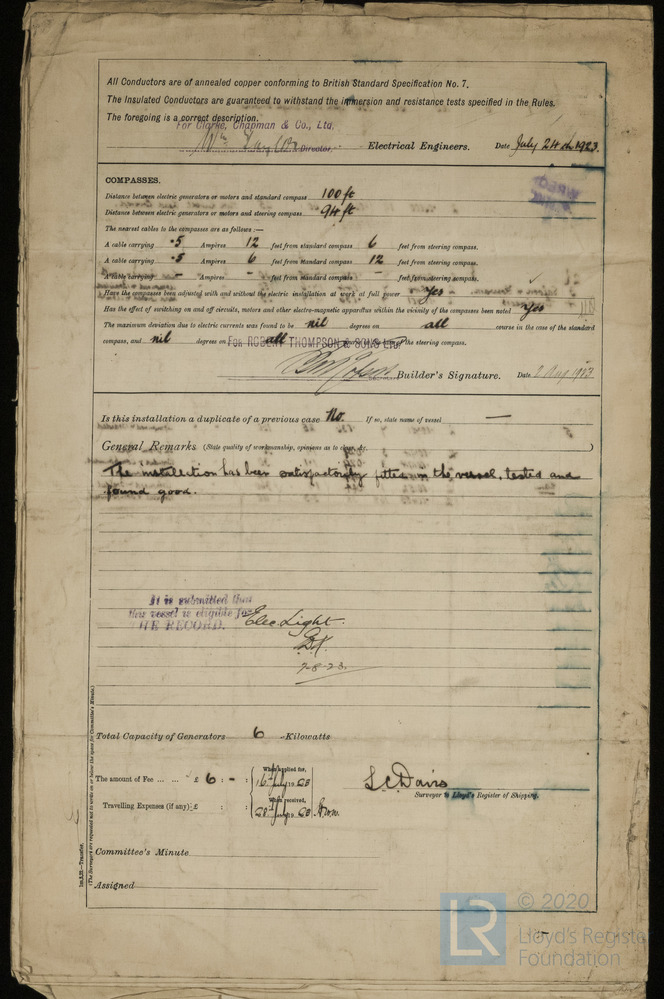 All Conductors are of annealed copper conforming to British Standard Specification No. 7.
The Insulated Conductors are guaranteed to withstand the immersion and resistance tests specified in the Rules.
The foregoing is a correct description.
For Clarke, Chapman & Co., Ltd.
Director. Electrical Engineers. Date July 24th 1923.
COMPASSES.
Distance between electric generators or motors and standard compass 100 ft
Distance between electric generators or motors and steering compass 94 ft
The nearest cables to the compasses are as follows:—
A cable carrying .5 Ampères 12 feet from standard compass 6 feet from steering compass.
A cable carrying .5 Ampères 6 feet from standard compass 12 feet from steering compass.
A cable carrying - Ampères - feet from standard compass - feet from steering compass.
Have the compasses been adjusted with and without the electric installation at work at full power Yes
Has the effect of switching on and off circuits, motors and other electro-magnetic apparatus within the vicinity of the compasses been noted Yes
The maximum deviation due to electric currents was found to be nil degrees on all course in the case of the standard
compass, and nil degrees on all the steering compass.
For ROBERT THOMPSON & SONS LTD
Builder's Signature. Date 2 Aug 1923
Is this installation a duplicate of a previous case No. If so, state name of vessel —
General Remarks (State quality of workmanship, opinions as to class, &c. )
The installation has been satisfactorily fitted in the vessel, tested and
found good.
It is submitted that
this vessel is eligible for
THE RECORD. Elec Light.
7-8-23
Total Capacity of Generators 6 Kilowatts
The amount of Fee ... ... £ 6 : - :
When applied for,
16 July 19 23
Travelling Expenses (if any) £ : :
When received,
July 19 23
L C Davis
Surveyor to Lloyd's Register of Shipping.
Committee's Minute
Assigned
Im.3.22—Transfer.
(The Surveyors are requested not to write on or below the space for Committee's Minute.)
LR
© 2020
Lloyd's Register
Foundation